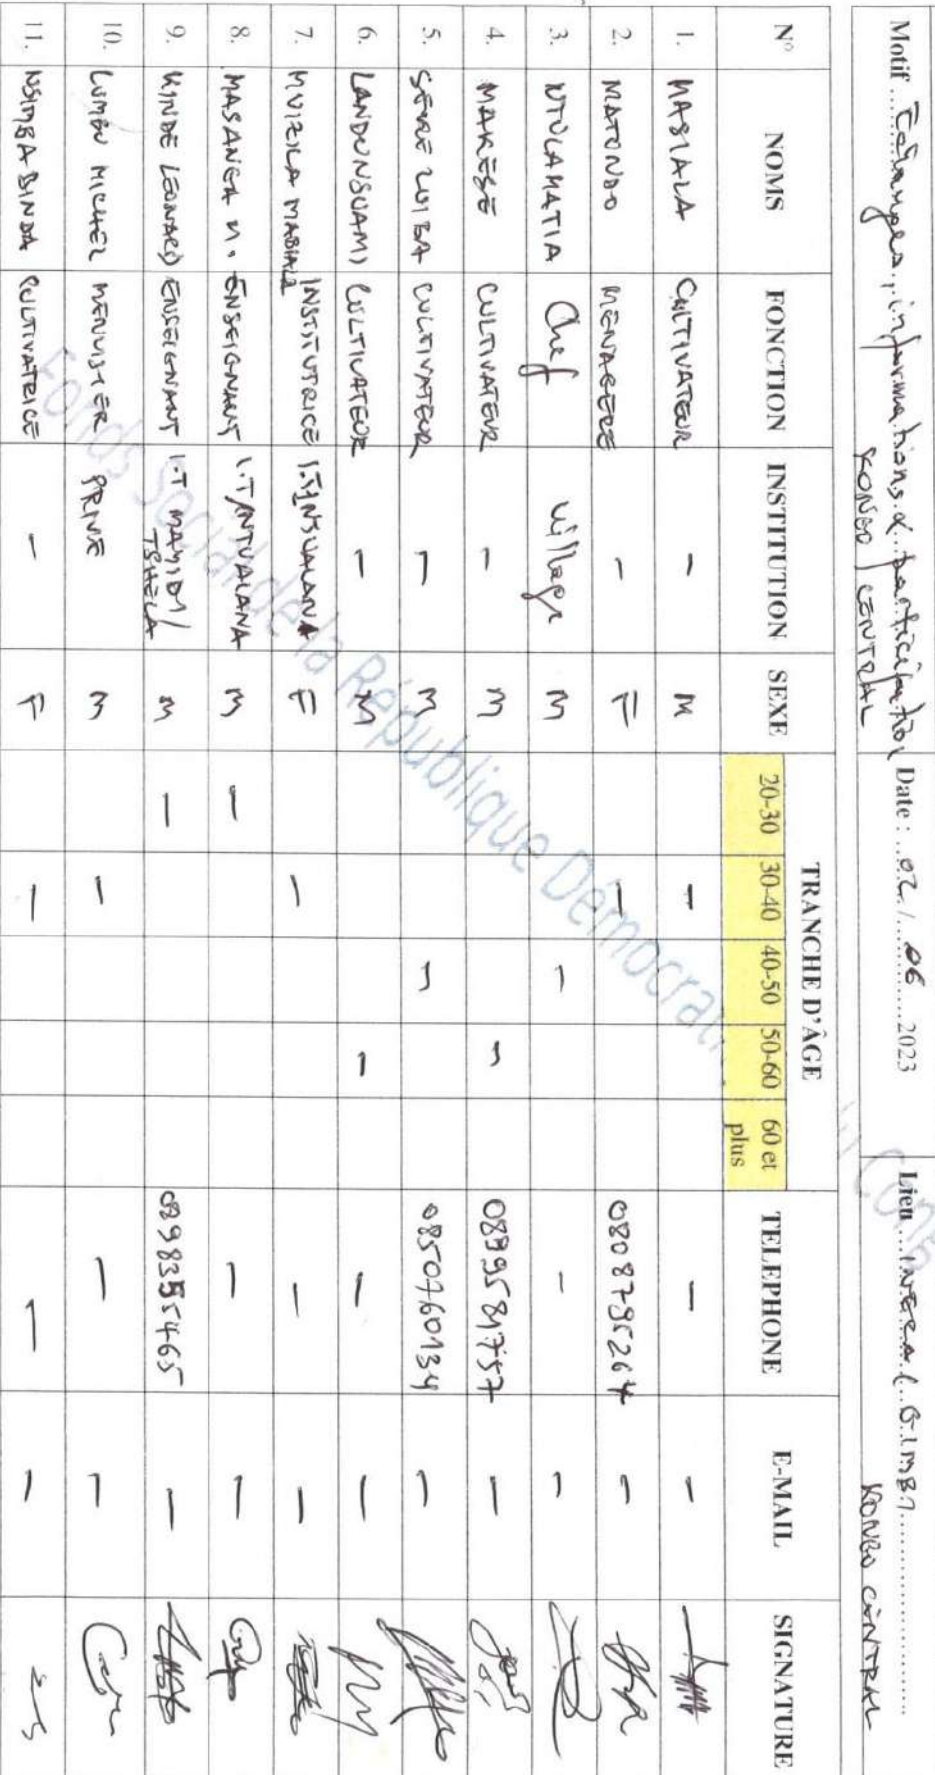 Motif ... Échanges, informations & participation
KONGO CENTRAL
Date : 02 / 06 2023
Lieu ... INGA ( GIMBI
KONGO CENTRAL
N° NOMS FONCTION INSTITUTION SEXE TRANCHE D'ÂGE TELEPHONE E-MAIL SIGNATURE
20-30 30-40 40-50 50-60 60 et plus
1. MASIALA CULTIVATEUR – M – – –
2. MATONDO MENAGERE – F – 0808795264 –
3. NTULAMATIA Chef village M – – –
4. MAKESE CULTIVATEUR – M – 0899581757 –
5. LUIBA CULTIVATEUR – M – 0850760134 –
6. LANDUNSUAMI CULTIVATEUR – M – – –
7. MVIZILA MABIALA INSTITUTRICE F – – –
8. MASANGA M. ENSEIGNANT M – – –
9. KINDE LEONARD ENSEIGNANT I.T MAYIDI / TSHELA M – –
10. LUMBU MICHEL MENUISIER PRIVE M – – –
11. NSIMBA BINDA CULTIVATRICE – F – – –
Fonds Social de la République Démocrati
u Cong